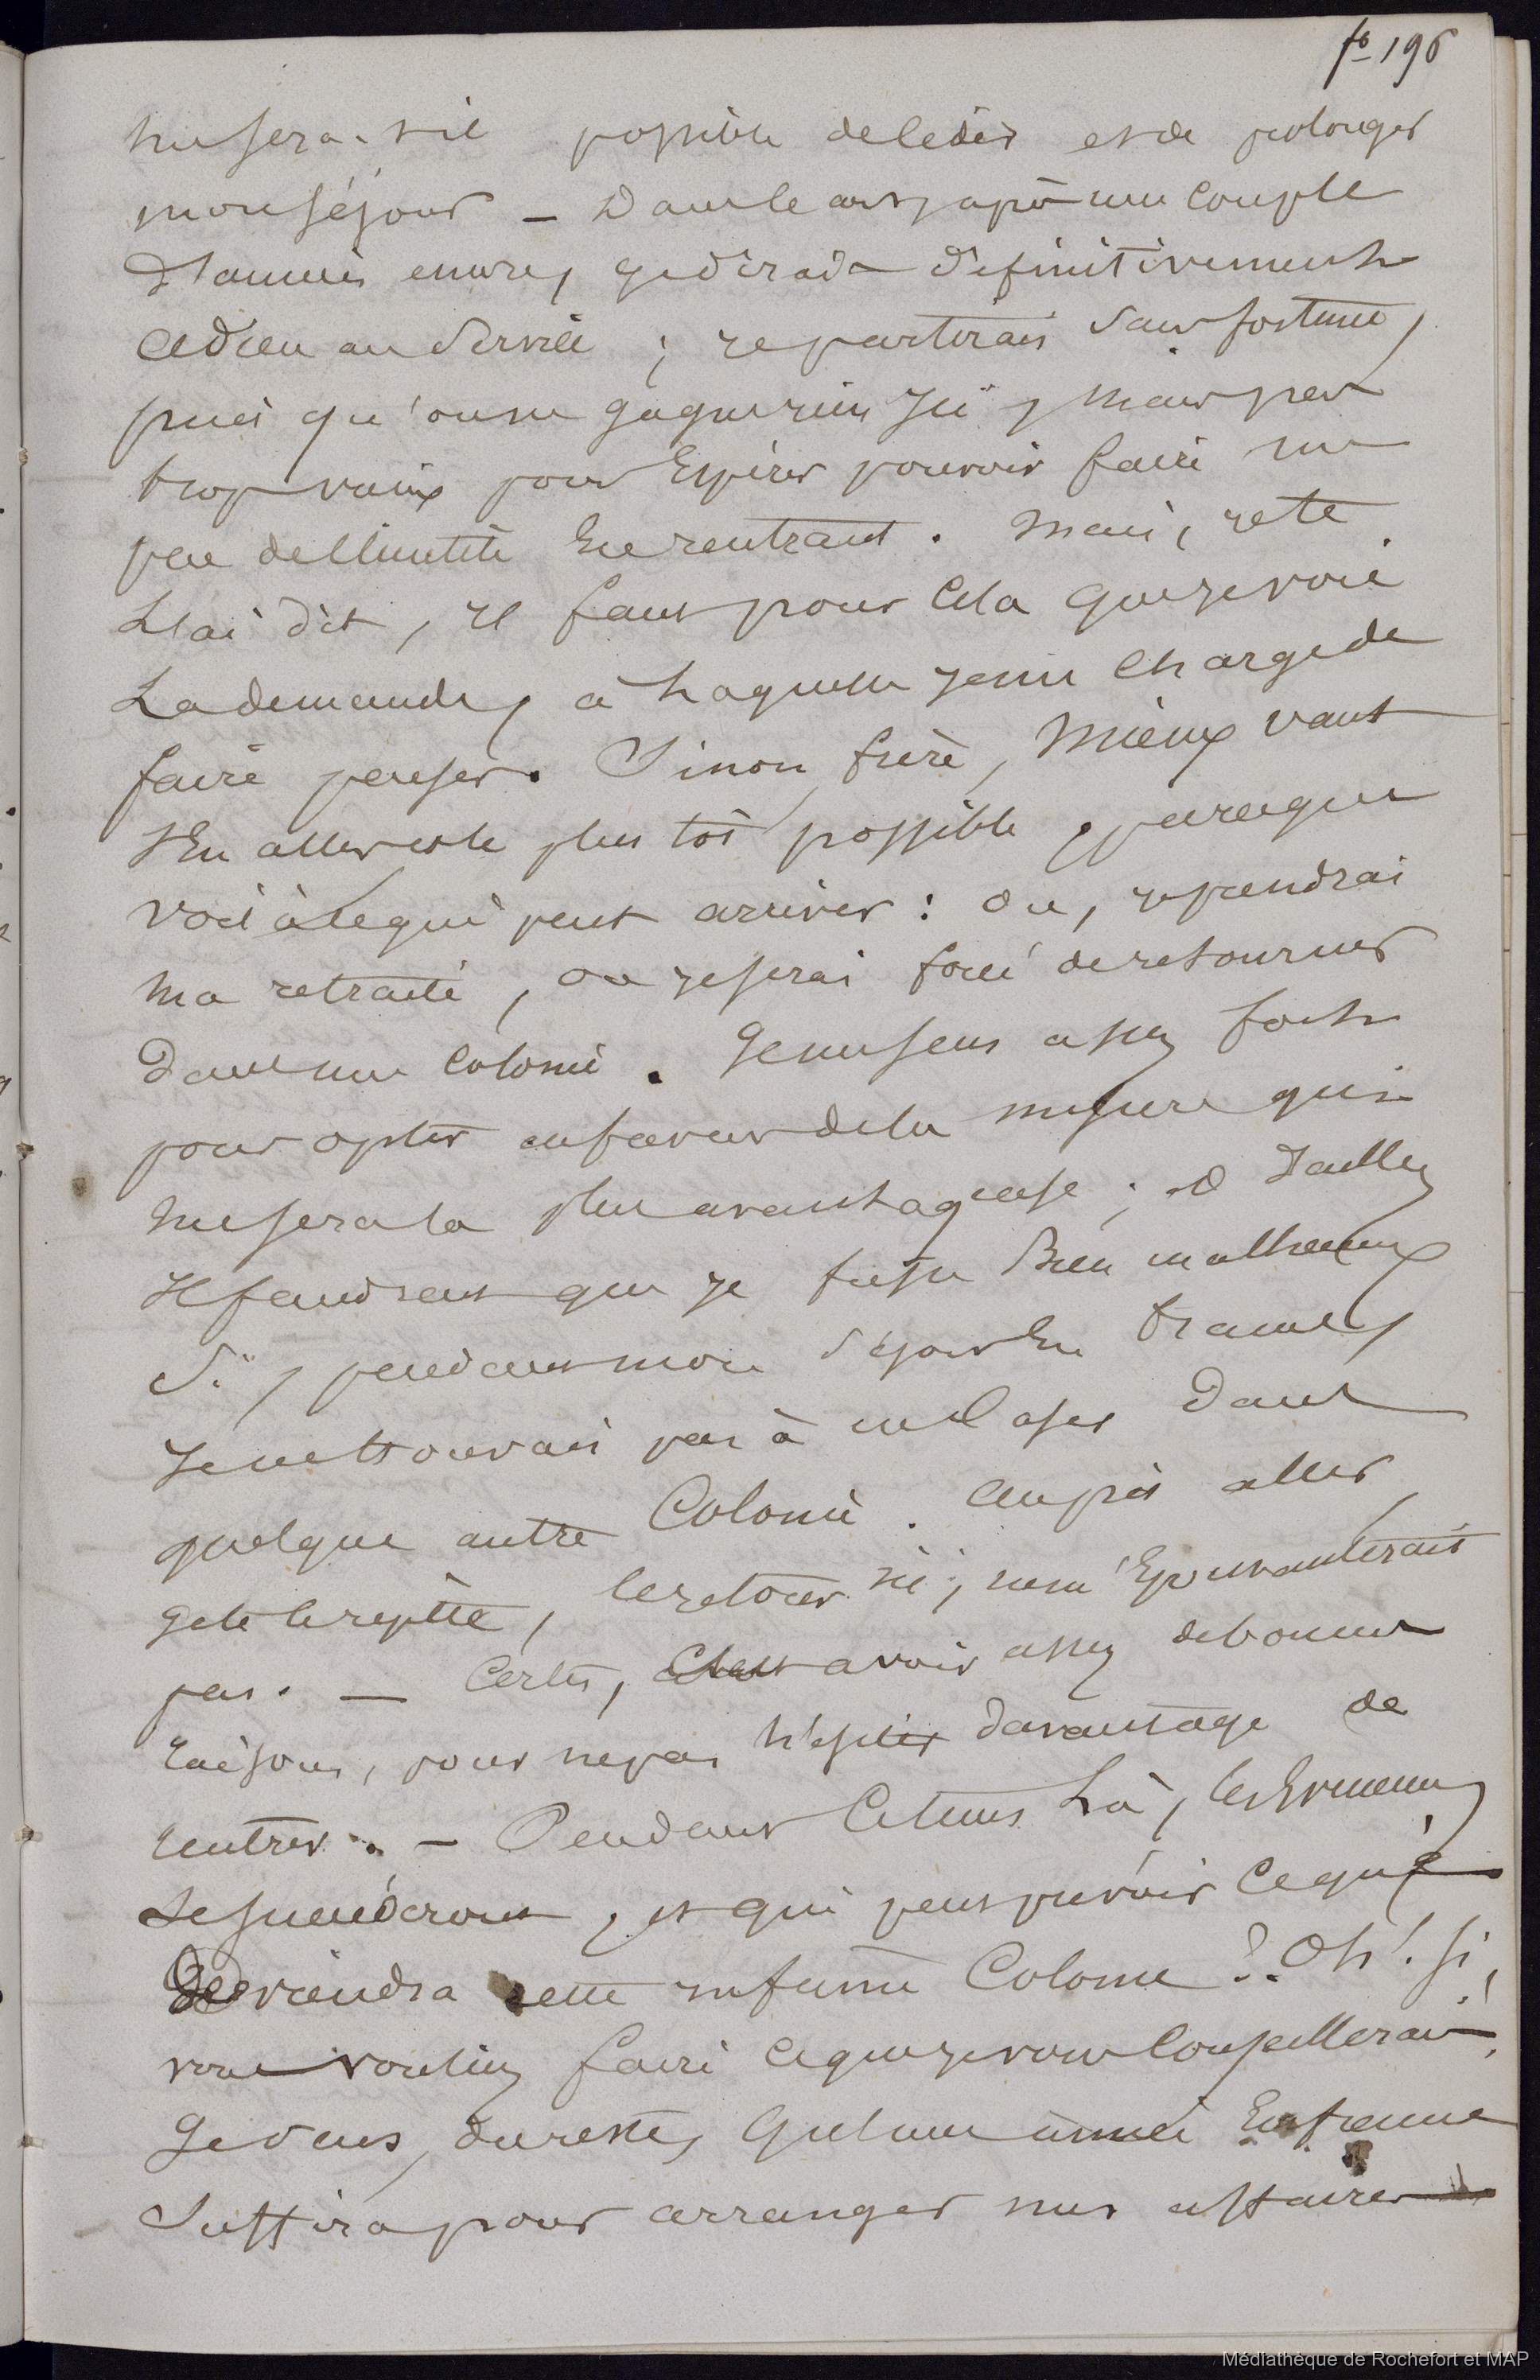 fo 196
me sera-t-il possible de céder et de prolonger
mon séjour – Dans le cas, après une couple
d'années encore, je dirais définitivement
adieu au service ; je partirais sans fortune,
puis qu'on ne gagne rien ici, mais pas
trop vieux pour espérer pouvoir faire un
peu de clientèle en rentrant. Mais, je te
l'ai dit, il faut pour cela que je voie
la demande, à laquelle je me charge de
faire penser. Sinon, frère, mieux vaut
s'en aller et le plus tôt possible, parceque
voilà ce qui peut arriver : ou, je prendrai
ma retraite, ou je serai forcé de retourner
dans une colonie. Je me sens assez fort
pour opter en faveur de la mesure qui
me sera la plus avantageuse ; et d'ailleurs
il faudrait que je fusse bien malheureux
si, pendant mon séjour en France,
je ne trouvais pas à me caser dans
quelque autre colonie. Au pis aller,
je te le répète, le retour ici, ne m'épouvanterait
pas. – Certes, c'est avoir assez de bonnes
raisons, pour ne pas hésiter davantage de
rentrer. – Pendant ce tems là, les événemens
se succéderont, et qui peut prévoir ce que
deviendra cette infime colonie ?. Oh ! si,
vous vouliez faire ce que je vous conseillerais,
Je veux, du reste, qu'une année en France
suffira pour arranger nos affaires